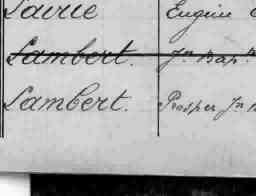 Eugène
Lambert. Jn Bapt
Lambert. Prosper Jn